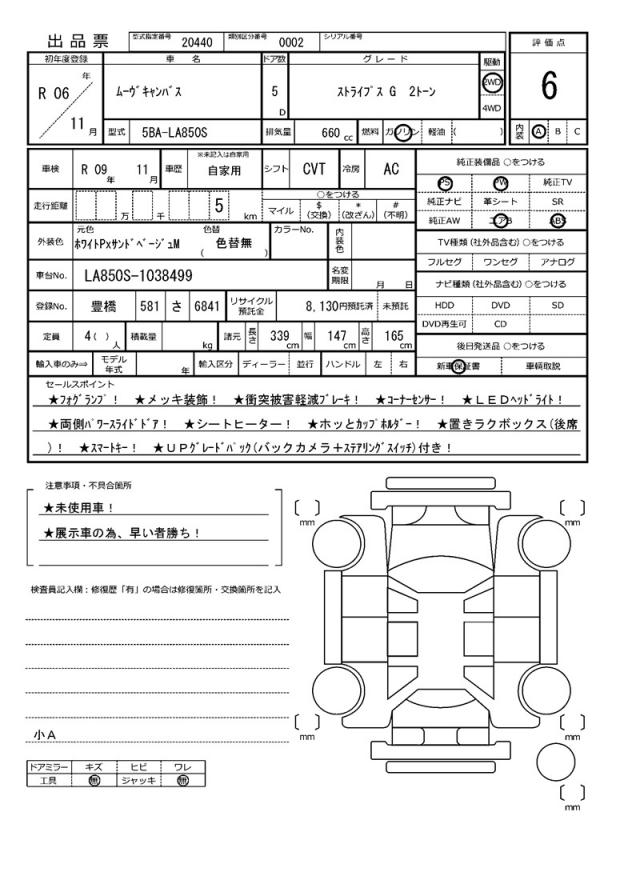 出品票 型式指定番号 20440 類別区分番号 0002 シリアル番号
評価点
6
内装 A B C
初年度登録 車名 ドア数 グレード 駆動
R 06 年 11 月 ムーヴキャンバス 5 D ストライプス G 2トーン 2WD 4WD
型式 5BA-LA850S 排気量 660 cc 燃料 ガソリン 軽油 ( )
車検 R 09 年 11 月 車歴 ※未記入は自家用 自家用 シフト CVT 冷房 AC
走行距離 万 千 5 km
○をつける
マイル $(交換) *(改ざん) #(不明)
外装色 元色 ホワイトPxサンドベージュM 色替 ( 色替無 ) カラーNo. 内装色
車台No. LA850S-1038499 名変期限 月 日
登録No. 豊橋 581 さ 6841 リサイクル預託金 8,130円預託済 未預託
定員 4( ) 人 積載量 kg 諸元 長さ 339 cm 幅 147 cm 高さ 165 cm
輸入車のみ⇒ モデル年式 年 輸入区分 ディーラー 並行 ハンドル 左 右
純正装備品 ○をつける
PS PW 純正TV
純正ナビ 革シート SR
純正AW エアB ABS
TV種類 (社外品含む) ○をつける
フルセグ ワンセグ アナログ
ナビ種類 (社外品含む) ○をつける
HDD DVD SD
DVD再生可 CD
後日発送品 ○をつける
新車保証書 車輌取説
セールスポイント
★フォグランプ! ★メッキ装飾! ★衝突被害軽減ブレーキ! ★コーナーセンサー! ★LEDヘッドライト!
★両側パワースライドドア! ★シートヒーター! ★ホッとカップホルダー! ★置きラクボックス(後席
)! ★スマートキー! ★UPグレードパック(バックカメラ+ステアリングスイッチ)付き!
注意事項・不具合箇所
★未使用車!
★展示車の為、早い者勝ち!
検査員記入欄：修復歴「有」の場合は修復箇所・交換箇所を記入
小A
ドアミラー キズ ヒビ ワレ
工具 無 ジャッキ 無
[ ] mm
[ ] mm
[ ] mm
[ ] mm
[ ] mm